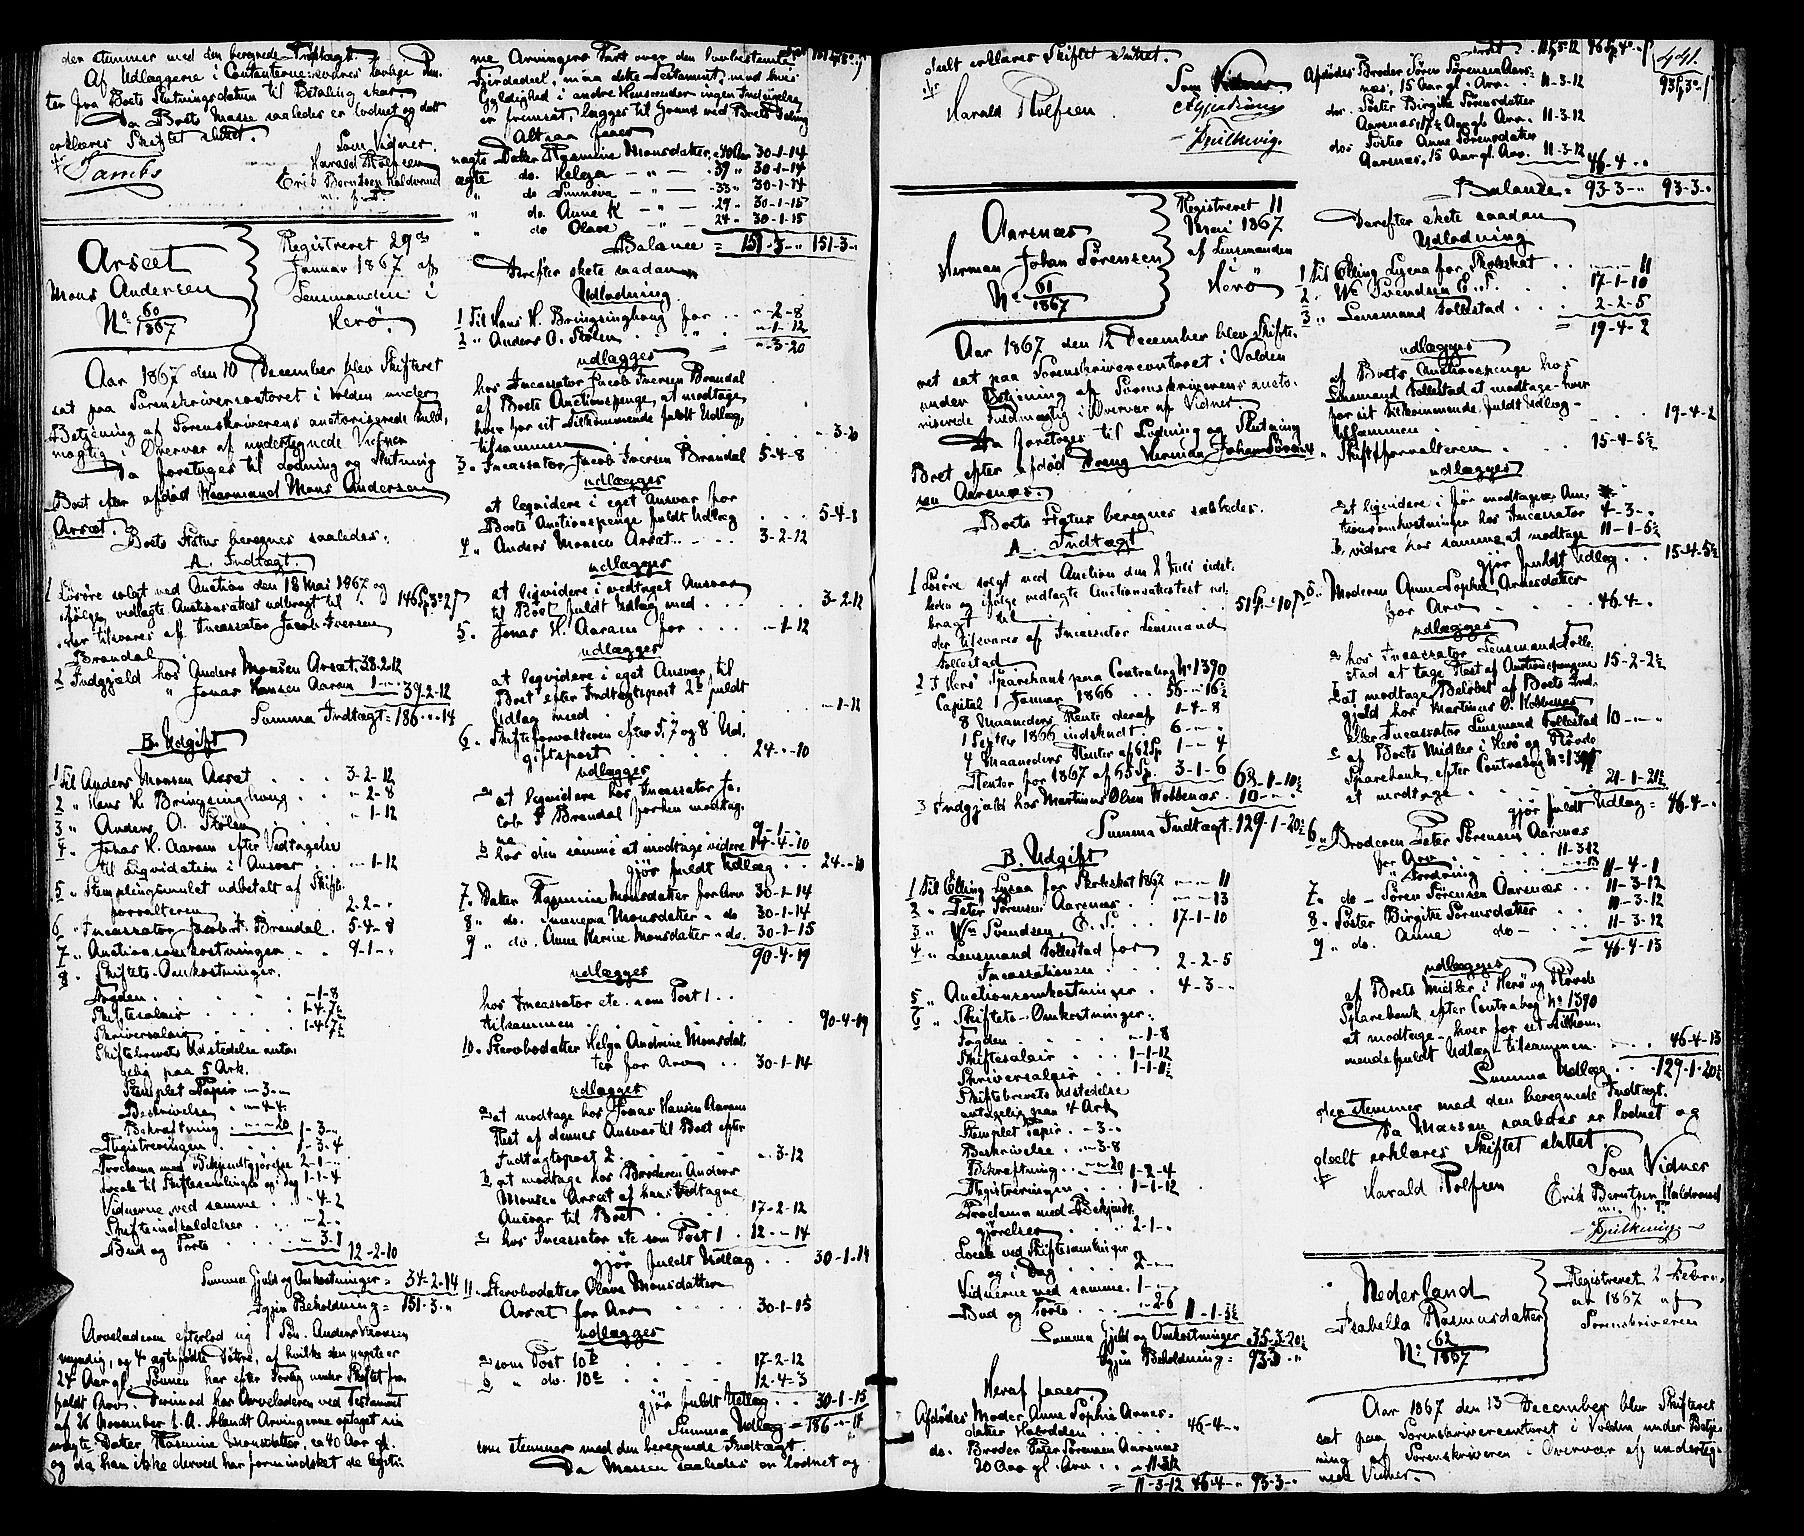 der stemmer med den beregnede Indtægt.
Af Udlæggerne i Contanterne svares lovlige Ren-
ter fra Boets Slutningsdatum til Betaling skeer.
Da Boets Masse saaledes er lodnet og deelt
erklæres Skiftet sluttet.
Som Vidner.
Harald Rolfsen
Erik Berntsen Haldorsund
m. f. P.
Tambs
Arsæt
Mons Andersen
No 60/1867
Registreret 29de
Januar 1867 af
Lensmanden i
Herø.
Aar 1867 den 10 December blev Skifteret
sat paa Sorenskrivercontoret i Volden under
Betjening af Sorenskriverens auctoriserede Fuld-
mægtig i Overvær af undertegnede Vidner
Da foretoges til Lodning og Slutning
Boet efter afdød Kaarmand Mons Andersen
Arsæt.
Boets Status beregnes saaledes:
A. Indtægt.
1 Løsøre solgt ved Auction den 18 Mai 1867 og
ifølge vedlagte Auctionsattest udbragt til 146 Sp 3 o 2 s
der tilsvares af Incassator Jacob Iversen
Brandal
2 Indgjæld hos Anders Monsen Arsæt 38-2-12
" Jonas Hansen Aaram 1-"-" 39-2-12
Summa Indtægt = 186-"-14
B. Udgift
1 Til Anders Monsen Arsæt . . . 3-2-12
2 " Hans H. Bringsinghoug . . "-2-8
3 " Anders O. Stolen . . . "-1-12
4 " Jonas H. Aaram efter Vedtagelse
til Liqvidation i Ansvar . . "-1-12
5 " Stemplingsmulct udbetalt af Skifte-
forvalteren . . . 2-2-"
6 " Incassator Jacob I. Brandal . 5-4-8
7 " Auctionsomkostninger . . 9-1-"
8 " Skiftets Omkostninger.
Fogden . . . "-1-8
Skiftesalair . . . 1-4-7½
Skriversalair . . . 1-4-7½
Skiftebrevets Udstedelse anta-
gelig paa 5 Ark.
Stemplet Papir "-3-"
Beskrivelse "-4-4
Bekræftning "-"-20 1-3-"
Registreringen . . 1-3-4
Proclama med Bekjendtgjørelse 2-1-"
Locale til Skiftesamlinger og i Dag 1-1-4
Vidnerne ved samme . . "-4-2
Skifteindkaldelser . . "-2-"
Bud og Porto . . "-3-1
12-2-10
Summa Gjeld og Omkostninger = 34-2-14
Igjen Beholdning = 151-3-"
Arveladeren efterlod sig 1 Søn. Anders Monsen
myndig, og 4 ægtefødte Døtre, af hvilke den yngste er
24 Aar gl. Sønnen har efter Forlig under Skiftet fra-
faldt Arv. Derimod har Arveladeren ved Testament
af 26 November f. A. blandt Arvingerne optaget sin
uægte Datter Rasmine Monsdatter, ca 40 Aar gl.
og da han ikke derved har formindsket de legiti-
me Arvingers Part over den lovbestemte
Fjerdedel, maa dette Testament, mod hvis
Gyldighed i andre Henseender ingen Indsigelse
er fremsat, lægges til Grund ved Boets Deling
Altsaa faaer
uægte Datter Rasmine Monsdatter, c 40 Aar 30-1-14
ægte do. Helga — " — 39 " 30-1-14
" do Sunneva — " — 33 " 30-1-14
" do. Anne K — " — 29 " 30-1-15
" do Olave — " — 24 " 30-1-15
Balance = 151-3-" 151-3-"
Derefter skete saadan
Udlodning
1 Til Hans H. Bringsinghoug for . . "-2-8
2 " Anders O. Stolen . . "-1-12
= "-3-20
udlægges
hos Incassator Jacob Iversen Brandal
af Boets Auctionspenge at modtage,
hver for sit Tilkommende fuldt Udlæg,
tilsammen . . . "-3-20
3 " Incassator Jacob Iversen Brandal 5-4-8
udlægges
at liqvidere i eget Ansvar for
Boets Auctionspenge fuldt Udlæg . . . 5-4-8
4 " Anders Monsen Arsæt . . . 3-2-12
udlægges
at liqvidere i vedtaget Ansvar
til Boet fuldt Udlæg med . . . 3-2-12
5 " Jonas H. Aaram for . . . "-1-12
udlægges
at liqvidere i eget Ansvar til
Boet efter Indtægtspost 2 fuldt
Udlæg med . . . "-1-12
6 " Skifteforvalteren efter 5, 7 og 8 Ud-
giftspost . . . 24-"-10
udlægges
a at liqvidere hos Incassator Ja-
cob I. Brandal forhen modtag-
ne . . . 9-1-"
b hos den samme at modtage videre 14-4-10
gjør fuldt Udlæg . . 24-"-10
7 " Datter Rasmine Monsdatter for Arv 30-1-14
8 " do. Sunneva Monsdatter " do 30-1-14
9 " do. Anne Karine Monsdatter " do. 30-1-15
90-4-19
udlægges
hos Incassator etc. som Post 1 . .
tilsammen . . . 90-4-19
10 " Stervbodatter Helga Andrine Monsdat-
ter for Arv . . . 30-1-14
udlægges
a at modtage hos Jonas Hansen Aaram
Rest af dennes Ansvar til Boet efter
Indtægtspost 2. . . . "-3-12
b at modtage hos Broderen Anders
Monsen Arsæt af hans vedtagne
Ansvar til Boet . . . 17-2-12
c hos Incassator etc som Post 1 . 12-"-14
gjør fuldt Udlæg . . 30-1-14
11 " Stervbodatter Olave Monsdatter
Arsæt for Arv . . . 30-1-15
udlægges
a som Post 10 b . . . 17-2-12
b " do. 10 c . . . 12-4-3
gjør fuldt Udlæg . . 30-1-15
Summa Udlæg = 186-"-14
som stemmer med den beregnede Indtægt.
Da Massen saaledes er lodnet og
deelt erklæres Skiftet sluttet.
Som Vidner
Harald Rolfsen
441.
Aarsnæs
Herman Johan Sørensen
No 61/1867
Registreret 11
Mai 1867
af Lensmanden
Herø
Aar 1867 den 12 December blev Skifte-
ret sat paa Sorenskrivercontoret i Volden
under Betjening af Sorenskriverens aucto-
riserede Fuldmægtig i Overvær af Vidner
Da foretoges til Lodning og Slutning
Boet efter afdød Dreng Herman Johan Søren-
sen Aarsnæs.
Boets Status beregnes saaledes.
A. Indtægt
1 Løsøre solgt ved Auction den 8 Juli sidst-
leden og ifølge vedlagte Auctionsattest ud-
bragt til . . . 51 Sp " 10 s
der tilsvares af Incassator Lensmand
Sollestad
2 I Herø Sparebank paa Contrabog No 1390
Capital 1 Januar 1866 . . 55-"-16½
8 Maaneders Rente deraf 1-4-8
1 Septbr 1866 indskudt . 6-"-"
4 Maaneders Renter af 62 Sp. 1-"-4
Renter for 1867 af 65 Sp. 3-1-6 68-1-10½
3 Indgjæld hos Martinus Olsen Kobbenæs . 10-"-"
Summa Indtægt = 129-1-20½
B. Udgift
1 Til Elling Lysaa for Skoleskat 1867 "-"-11
2 " Peter Sørensen Aarsnæs . . "-"-13
3 " Wm Svendsen, C. S. . . . 17-1-10
4 " Lensmand Sollestad for
Incassationen . . . 2-2-5
5 " Auctionsomkostninger . . 4-3-"
6 " Skiftets Omkostninger:
Fogden . . . "-1-8
Skiftesalair . . . 1-1-12
Skriversalair . . . 1-1-11½
Skiftebrevets Udstedelse
antagelig paa 4 Ark
Stemplet Papir . "-3-"
Beskrivelse . . "-3-8
Bekræftning . . "-"-20 1-2-4
Registreringen . . . 1-1-12
Proclama med Bekjendt-
gjørelse . . . 2-1-"
Locale ved Skiftesamlinger
og i Dag . . . 2-"-"
Vidnerne ved samme . 1-"-"
Bud og Porto . . . "-2-6 11-1-5½
Summa Gjeld og Omkostninger = 35-3-20½
Igjen Beholdning = 93-3-"
Heraf faaer
Afdødes Moder Anne Sophie Arnes-
datter . . . 46-4-"
do. Broder Peter Sørensen Aarsnæs
20 Aar gl. Arv . . 11-3-12
= 11-3-12 46-4-" 93-3-"
Afdødes Broder Søren Sørensen Aars-
næs, 15 Aar gl. Arv . . 11-3-12
do. Søster Birgitte Sørensdatter
Aarsnæs, 17½ Aar gl. Arv. 11-3-12
do. Søster Anne Sørensdatter
Aarsnæs, 15 Aar gl. Arv. 11-3-12 46-4-"
Balance = 93-3-" 93-3-"
Derefter skete saadan
Udlodning
1 Til Elling Lysaa for Skoleskat . . "-"-11
2 " Wm Svendsen C. S. . . . 17-1-10
3 " Lensmand Sollestad . . . 2-2-5
= 19-4-2
udlægges
af Boets Auctionspenge hos
Lensmand Sollestad at modtage hver
for sit Tilkommende fuldt Udlæg
tilsammen . . . 19-4-2
4 " Skifteforvalteren . . . 15-4-5½
udlægges
a at liqvidere i før modtagne Auc-
tionsomkostninger hos Incassator 4-3-"
b videre hos samme at modtage 11-1-5½
gjør fuldt Udlæg . . 15-4-5½
5 " Moderen Anne Sophie Arnesdatter
for Arv . . . 46-4-"
udlægges
a hos Incassator Lensmand Solle-
stad at tage Rest af Auctionspengene 15-2-2½
b at modtage Beløbet af Boets Ind-
gjæld hos Martinus O. Kobbenæs
eller Incassator Lensmand Sollestad 10-"-"
c af Boets Midler i Herø og Røvde
Sparebank efter Contrabog No 1390
at modtage . . . 21-1-21½
gjør fuldt Udlæg = 46-4-"
6 " Broderen Peter Sørensen Aarsnæs
for Arv . . . 11-3-12
" Fordring . . . "-"-13 11-4-1
7 " do - Søren Sørensen Aarsnæs . . 11-3-12
8 " Søster Birgitte Sørensdatter . . . 11-3-12
9 " do. Anne do - . . 11-3-12
= 46-4-13
udlægges
af Boets Midler i Herø og Røvde
Sparebank efter Contrabog No 1390
at modtage - hver for sit Tilkom-
mende fuldt Udlæg - tilsammen . . . 46-4-13
Summa Udlæg . . . 129-1-20½
der stemmer med den beregnede Indtægt.
Da Massen saaledes er lodnet og
deelt erklæres Skiftet sluttet.
Som Vidner
Harald Rolfsen
Erik Berntsen Haldorsund
m. f. P.
Nederland
Isabella Rasmusdatter
No 62/1867
Registreret 2 Febru-
ar 1867 af
Sorenskriveren
Aar 1867 den 13 December blev Skifteret
sat paa Sorenskrivercontoret i Volden under Betje-
ning af Sorenskriveren i Overvær af underteg-
nede Vidner.